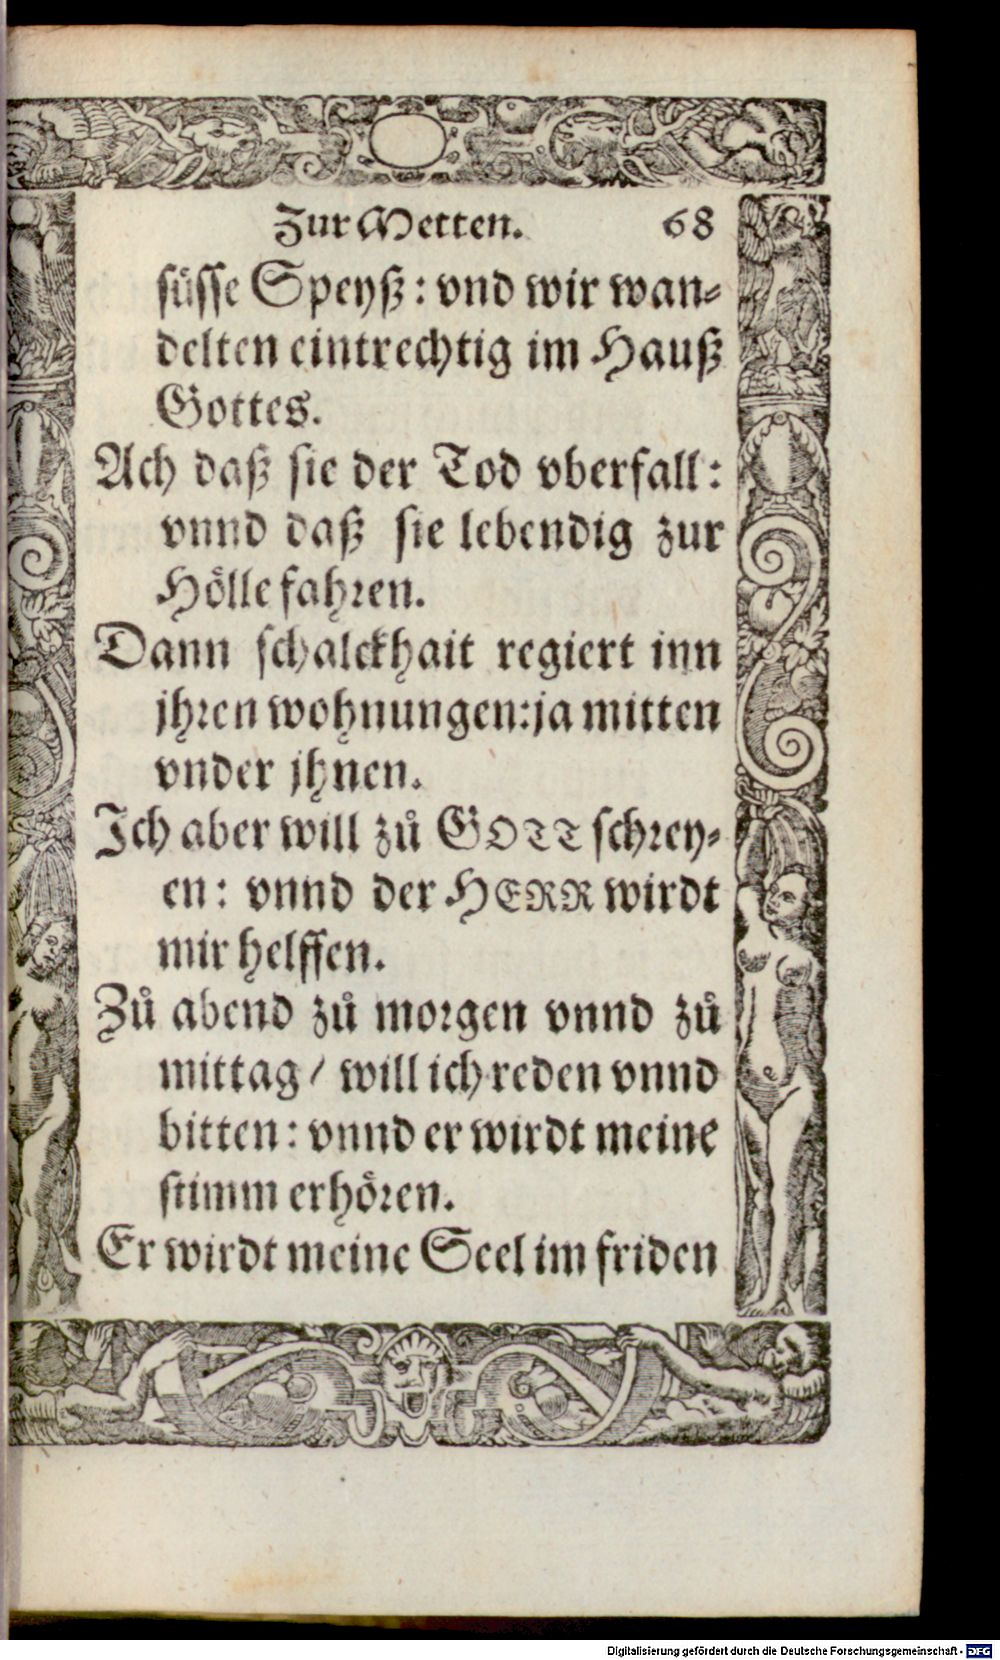 Zur Metten. 68
süsse Speyß: vnd wir wan-
delten eintrechtig im Hauß
Gottes.
Ach daß sie der Tod vberfall:
vnnd daß sie lebendig zur
Hölle fahren.
Dann schalckhait regiert inn
jhren wohnungen: ja mitten
vnder jhnen.
Ich aber will zů GOTT schrey-
en: vnnd der HERR wirdt
mir helffen.
Zů abend zů morgen vnnd zů
mittag / will ich reden vnnd
bitten: vnnd er wirdt meine
stimm erhören.
Er wirdt meine Seel im friden
Digitalisierung gefördert durch die Deutsche Forschungsgemeinschaft - DFG